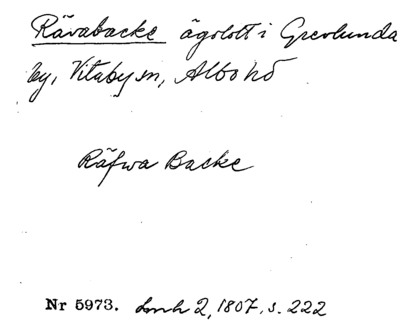 Rävabacke ägolott i Grevlunda
by, Vitaby sn, Albo hd
Räfwa Backe
Nr 5973. Lmh 2, 1807, s. 222